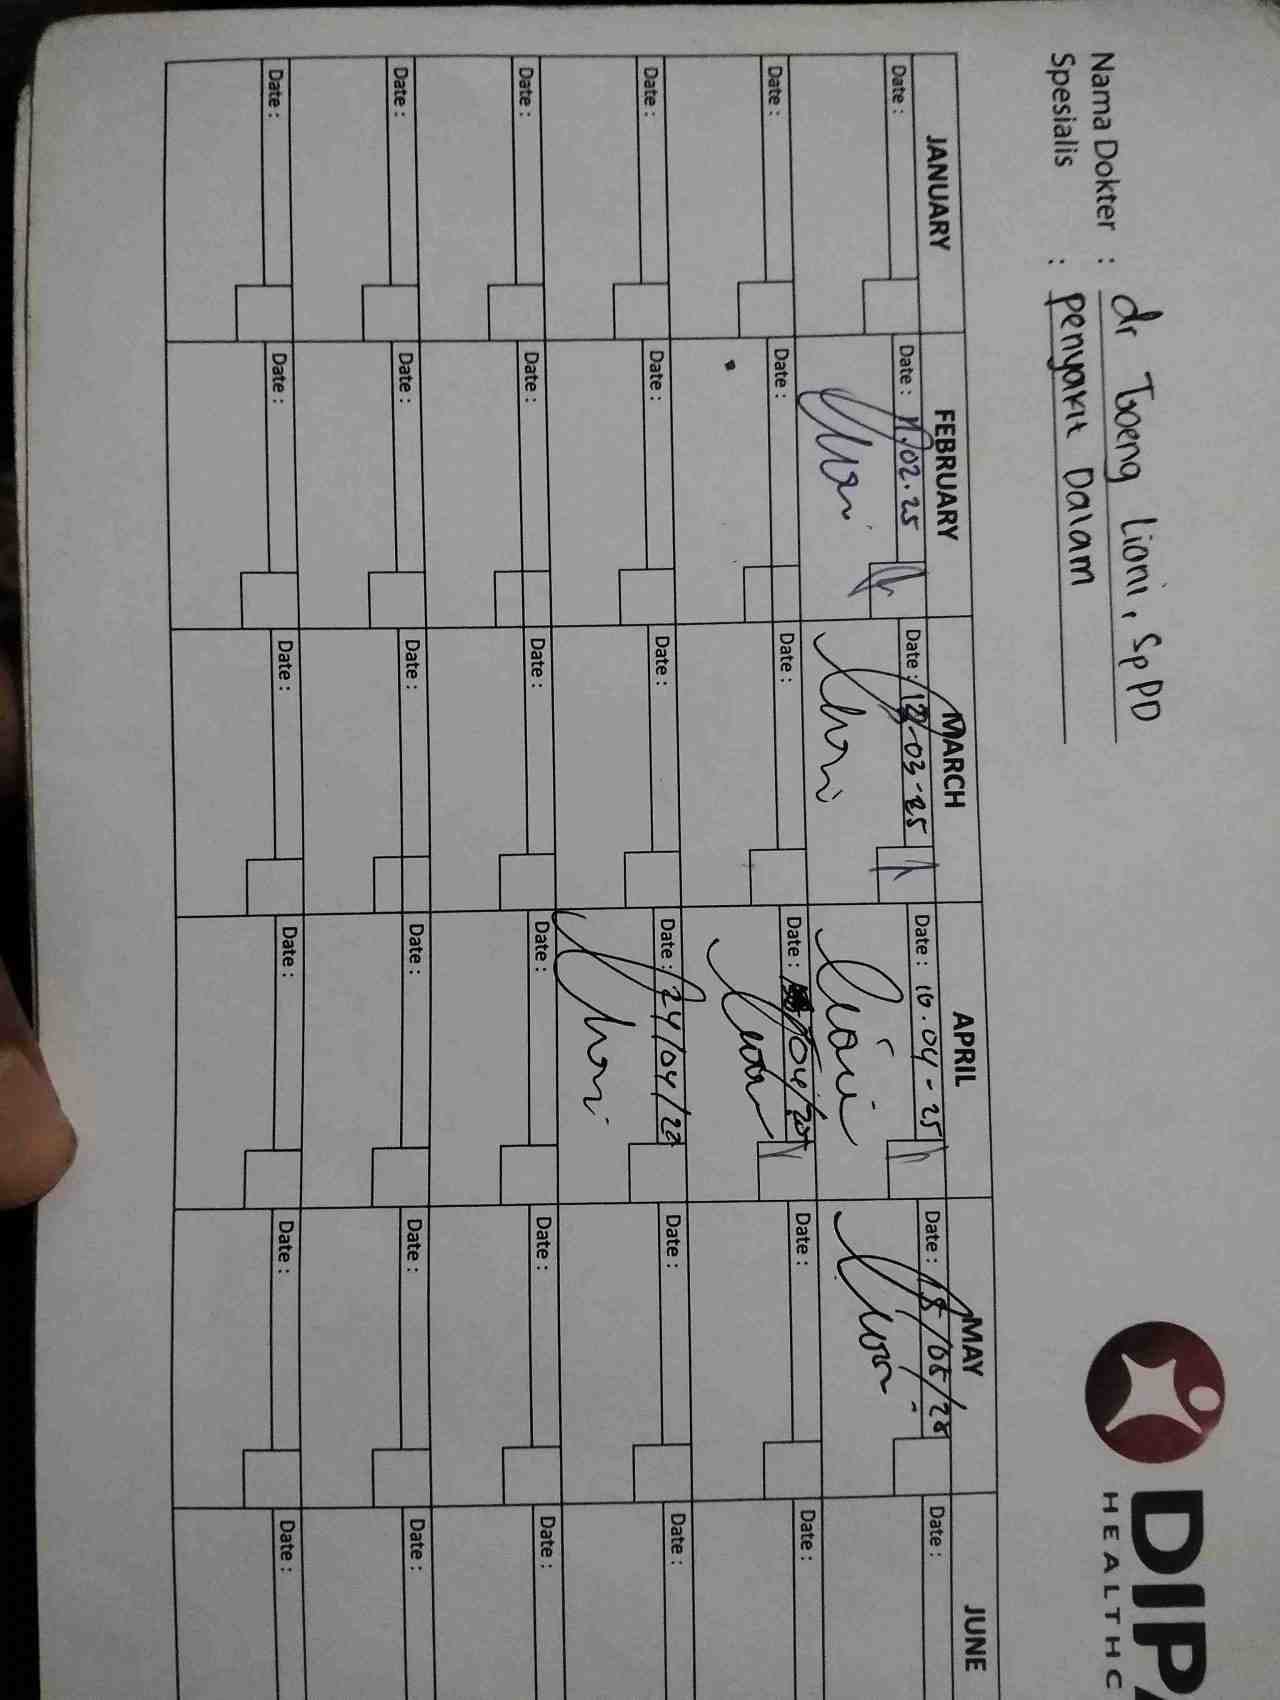 Nama Dokter : dr Tjoeng Lioni, SpPD
Spesialis : Penyakit Dalam
DIPA
HEALTHC
JANUARY FEBRUARY MARCH APRIL MAY JUNE
Date : Date : 11.02.25 Date : 12-03-25 Date : 16.04-25 Date : 15/05/25 Date :
Date : Date : Date : Date : /04/25 Date : Date :
Date : Date : Date : Date : 24/04/25 Date : Date :
Date : Date : Date : Date : Date : Date :
Date : Date : Date : Date : Date : Date :
Date : Date : Date : Date : Date : Date :